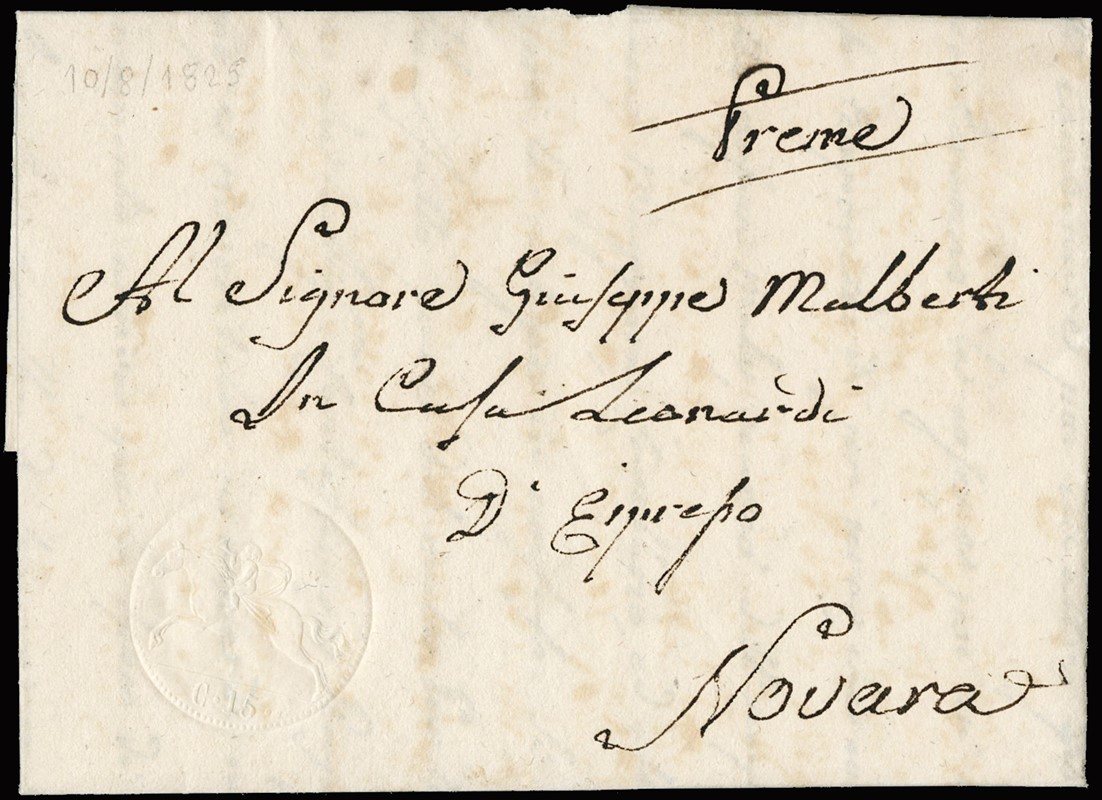 10/8/1825
Preme
Al Signore Giuseppe Malberti
In Casa Leonardi
D' Espresso
Novara
C. 15